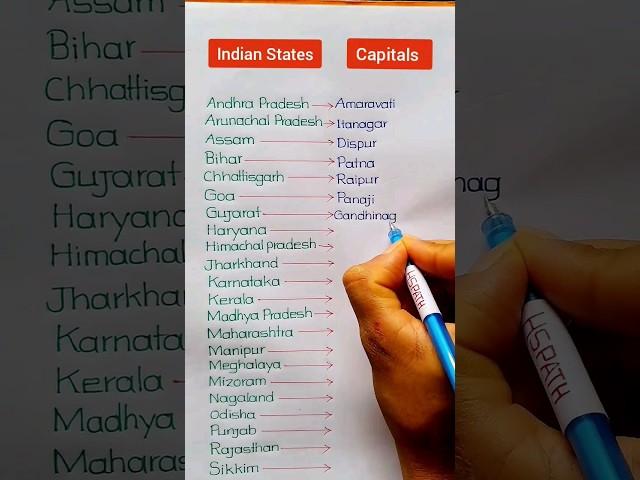 Indian States Capitals
Andhra Pradesh → Amaravati
Arunachal Pradesh → Itanagar
Assam → Dispur
Bihar → Patna
Chhattisgarh → Raipur
Goa → Panaji
Gujarat → Gandhinag
Haryana →
Himachal pradesh →
Jharkhand →
Karnataka →
Kerala →
Madhya Pradesh →
Maharashtra →
Manipur →
Meghalaya →
Mizoram →
Nagaland →
Odisha →
Punjab →
Rajasthan →
Sikkim →
HSPATH
Assam
Bihar
Chhattisg
Goa
Gujarat
Haryana
Himachal
Jharkha
Karnata
Kerala
Madhya
Maharas
nag
HSPATH